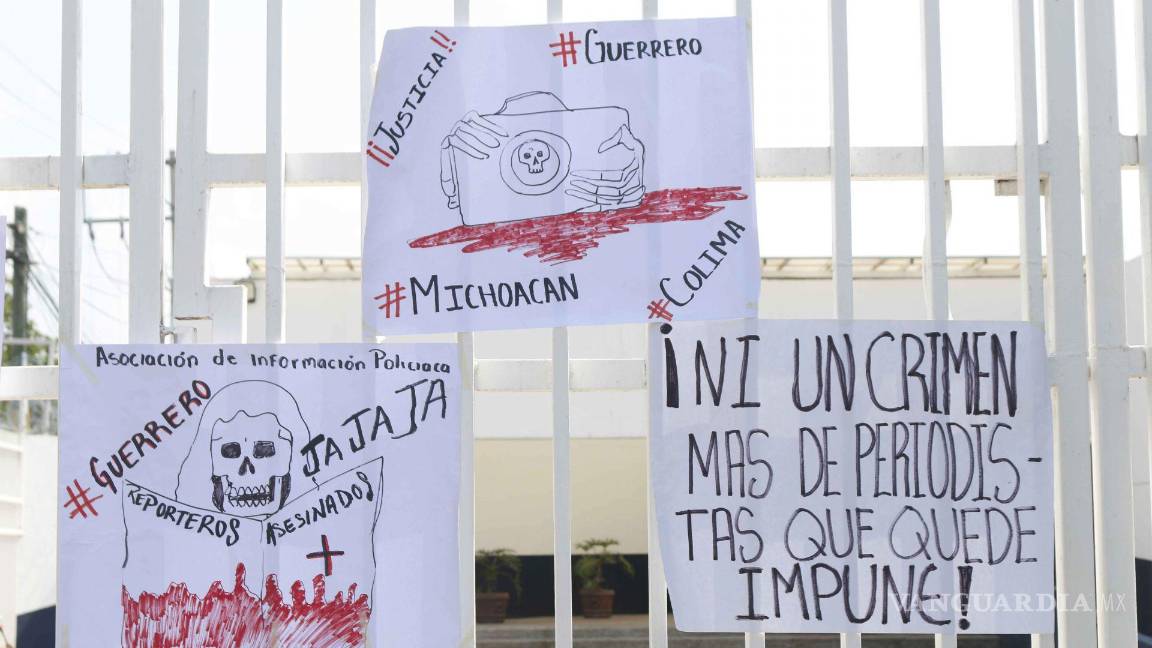 ¡¡JUSTICIA!!
#GUERRERO
#MICHOACAN
#COLIMA
ASOCIACIÓN DE INFORMACIÓN POLICIACA
#GUERRERO
JA JA JA
REPORTEROS ASESINADOS
¡NI UN CRIMEN
MAS DE PERIODIS-
TAS QUE QUEDE
IMPUNE!
VANGUARDIA.MX